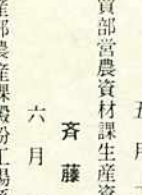 五月
買部営農資材課生産資
斉藤
六月
産部農産課澱粉工場